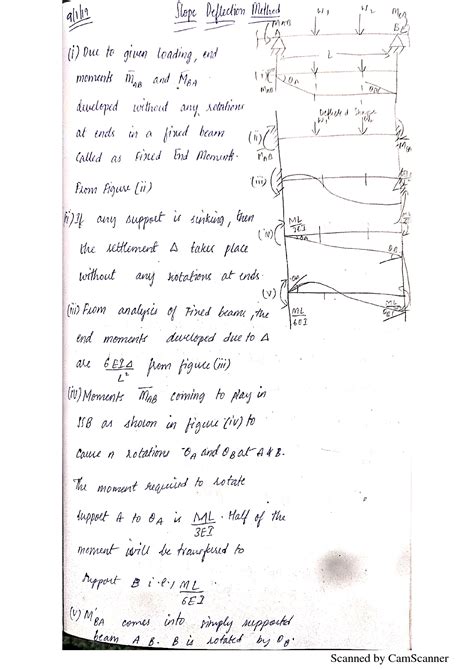 9/1/19
Slope Deflection Method
(i) Due to given loading, end
moments M̅AB and M̅BA
developed without any rotations
at ends in a fixed beam
called as Fixed End Moments.
From Figure (ii)
(ii) If any support is sinking, then
the settlement Δ takes place
without any rotations at ends.
(iii) From analysis of Fixed beams, the
end moments developed due to Δ
are 6EIΔ/L² from figure (iii)
(iv) Moments M̅AB coming to play in
SSB as shown in figure (iv) to
cause n rotations θA and θB at A & B.
The moment required to rotate
support A to θA is ML/3EI. Half of the
moment will be transfered to
support B i.e., ML/6EI
(v) M'BA comes into simply supported
beam A B. B is rotated by θB.
MAB
W1
W2
A
B
L
(i)
MAB
θA
θB
Deflected Shape
(ii)
M̅AB
M̅BA
(iii)
(iv)
ML/3EI
θB
(v)
ML/6EI
Scanned by CamScanner